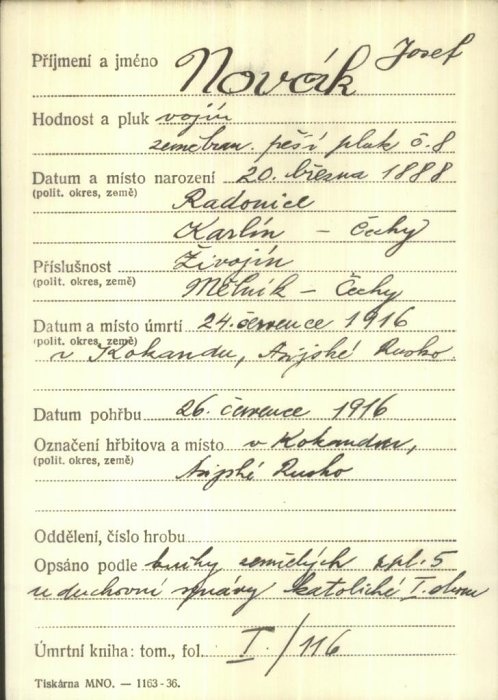 Příjmení a jméno Novák Josef
Hodnost a pluk vojín
zeměbran. pěší pluk č. 8
Datum a místo narození 20. března 1888
(polit. okres, země) Radonice
Karlín – Čechy
Příslušnost Živojín
(polit. okres, země) Mělník – Čechy
Datum a místo úmrtí 24. července 1916
(polit. okres, země)
v Kokandu, Asijské Rusko
Datum pohřbu 26. července 1916
Označení hřbitova a místo v Kokandu,
(polit. okres, země) Asijské Rusko
Oddělení, číslo hrobu
Opsáno podle knihy zemřelých spl. 5
u duchovní správy katolické I. okrsu
Úmrtní kniha: tom., fol. I/116
Tiskárna MNO. — 1163-36.